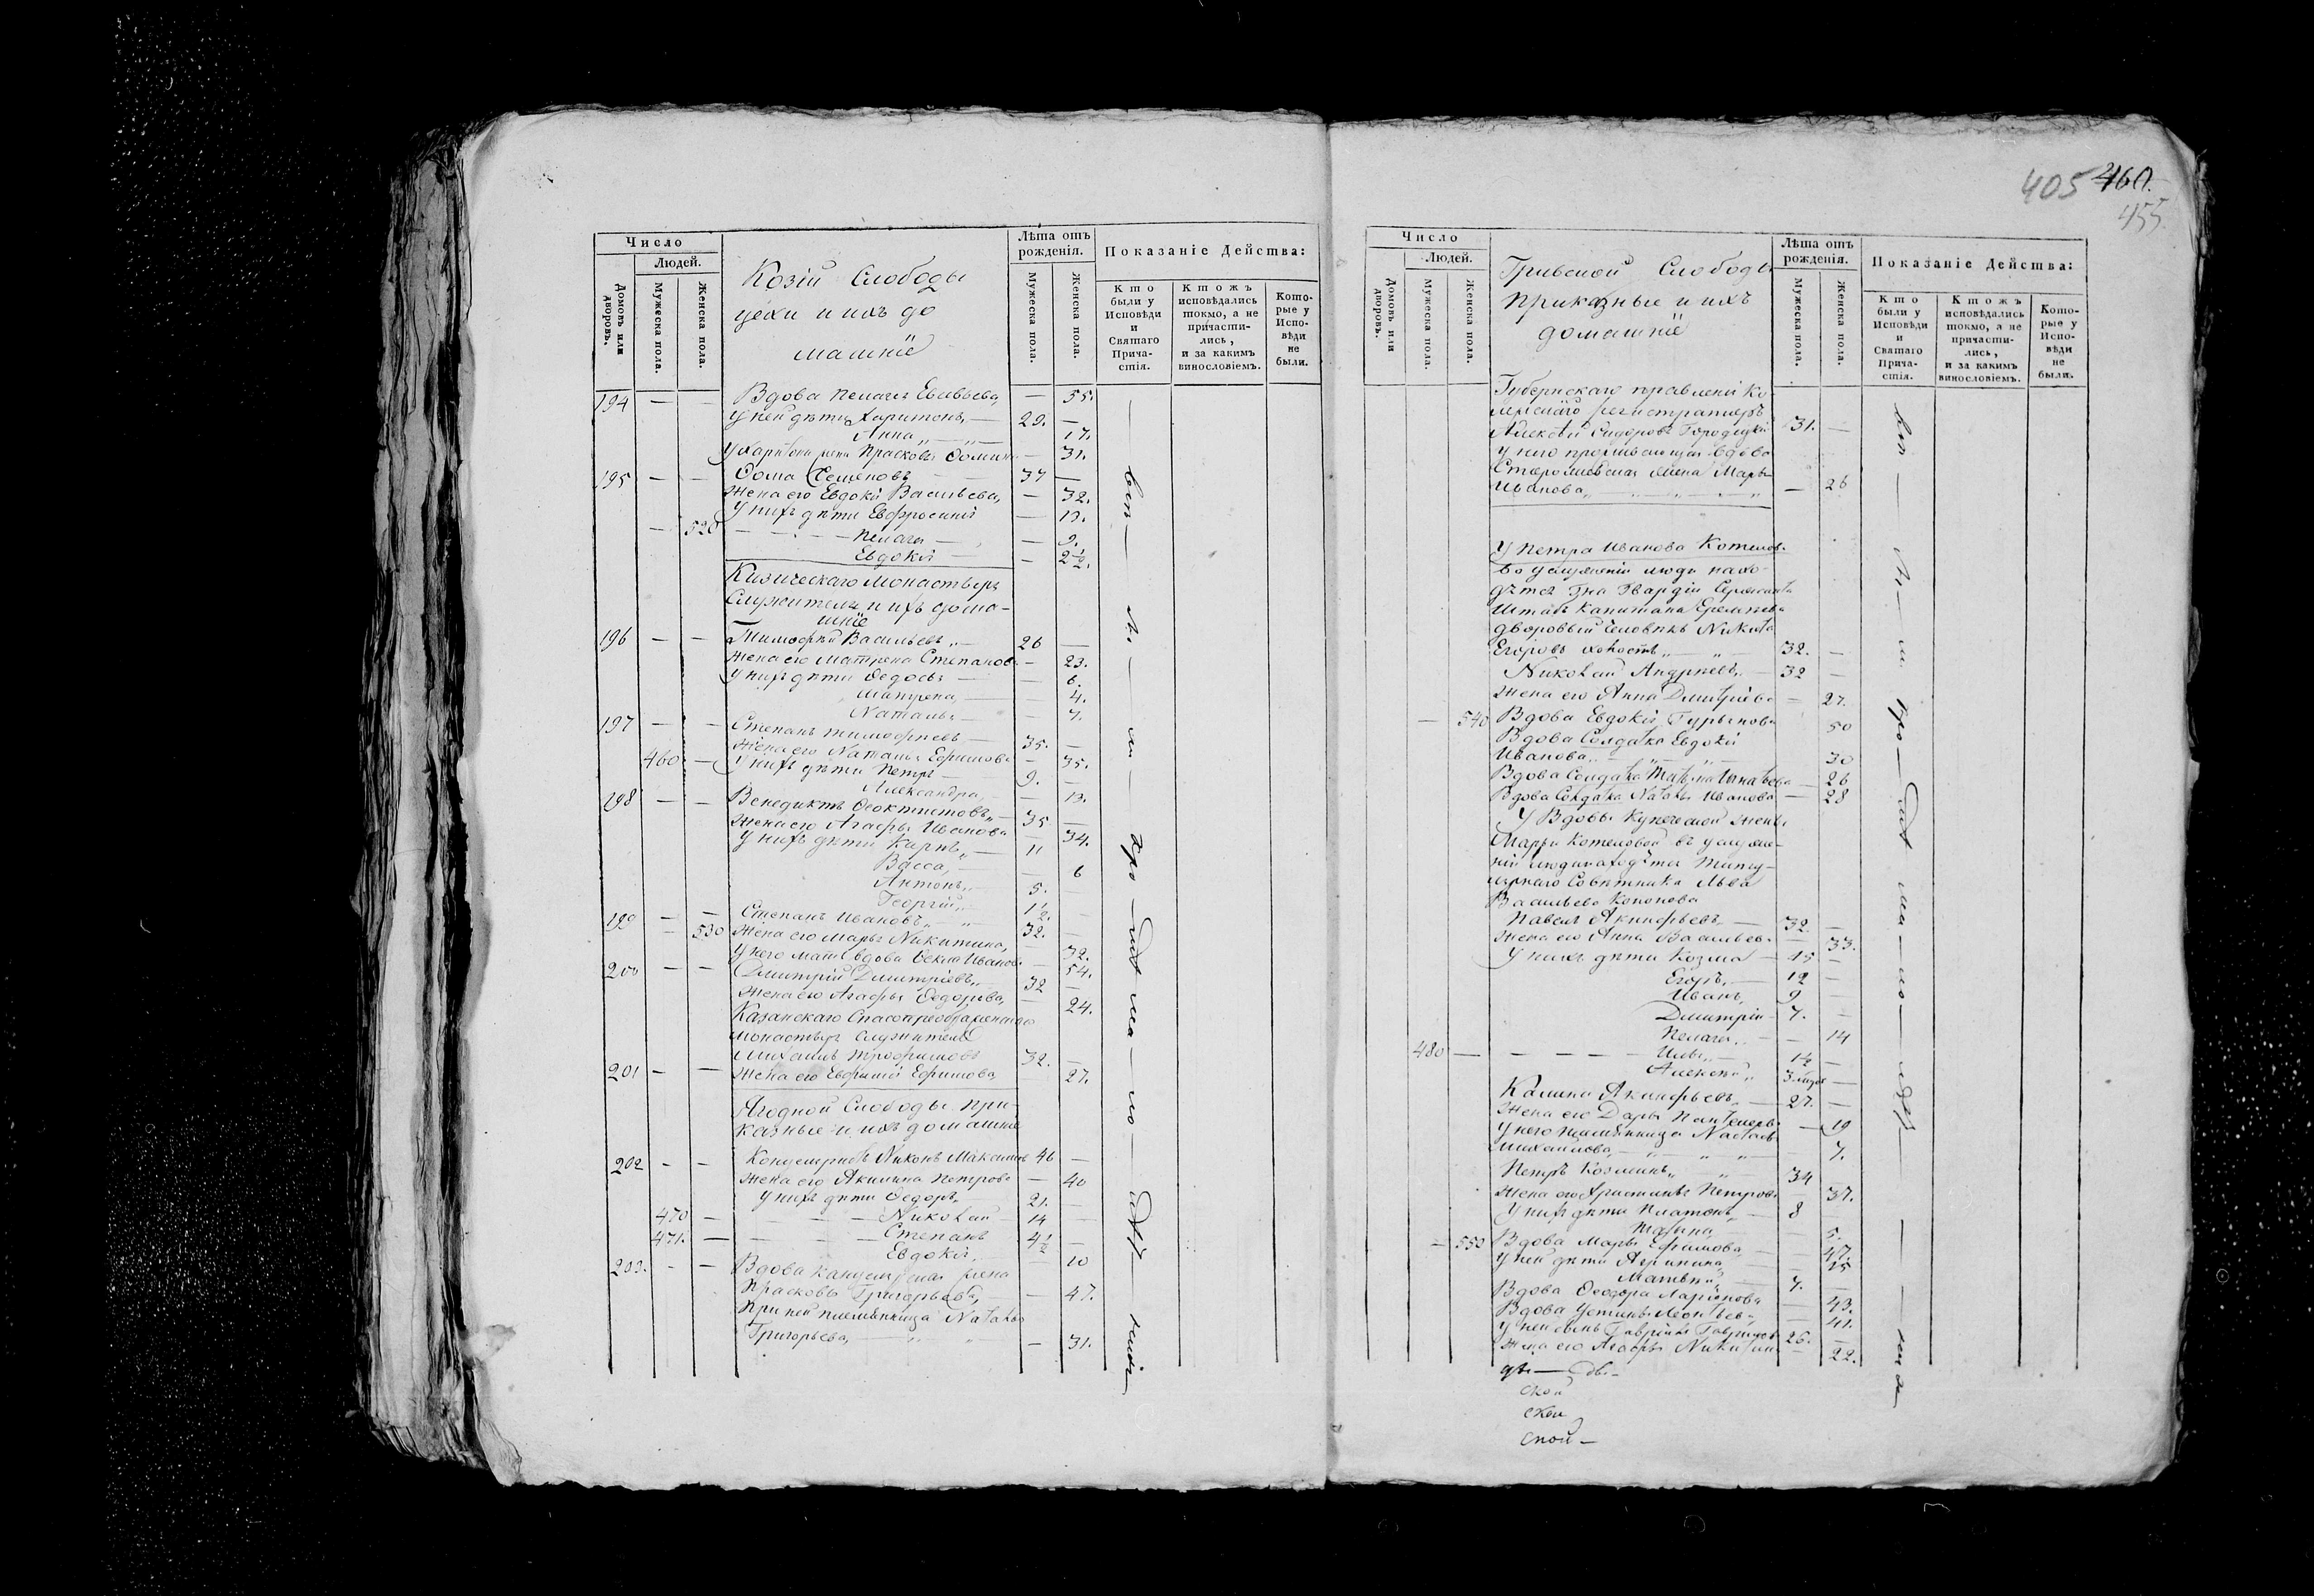 405 460.
455
Число
Людей.
Домовъ или дворовъ.
Мужеска пола.
Женска пола.
Козій Слободы
цехи и ихъ до
машніе
Лѣта отъ рожденія.
Мужеска пола.
Женска пола.
Показаніе Действа:
Кто были у Исповѣди и Святаго Прича- стія.
Ктожъ исповѣдались токмо, а не причасти- лись, и за какимъ винословіемъ.
Кото- рые у Испо- вѣди не были.
194 — — Вдова Пелагея — 55.
У ней дѣти Харитонъ, — 29. —
Анна „ — 17.
У Харитона жена Прасковья Фомина — 31.
195 — — Фома Семеновъ 37 —
Жена его Евдокія Васильева, — 32.
У нихъ дѣти Евфросинія — 13.
— 520 — Пелагея — — 9.
Евдокія — — 2½.
Кизическаго Монастыря
Служители и ихъ дома-
шніе
196 — — Тимофей Васильевъ „ 26 —
Жена его Матрена Степанова — 23.
У нихъ дѣти Федосья — — 6.
Матрена, — 4.
Наталья — — 7.
197 — — Степанъ Тимофеевъ — 35. —
Жена его Наталья Ефимова — 35.
460 — У нихъ дѣти Петръ — 9. —
Александра, — 13.
198 — — Венедиктъ Феоктистовъ „ 35 —
Жена его Агафья Иванова — 34.
У нихъ дѣти Карпъ „ — 11
Васса, — — 6
Антонъ „ — 5. —
Георгій „ — 1½
199 — — Степанъ Ивановъ „ 32. —
— 530 Жена его Марья Никитина, — 32.
У него мать вдова Фекла Иванова — 54.
200 — — Дмитрій Дмитріевъ „ 32 —
Жена его Агафья Федорова, — 24.
Казанскаго Спасопреображенскаго
монастыря Служители
Михаилъ Трофимовъ 32. —
201 — — Жена его Ефимова 27.
Ягодной Слободы при-
казные и ихъ домашніе
202 — — Канцеляристъ Никонъ Максимовъ 46 —
Жена его Акилина Петрова — 40
У нихъ дѣти Федоръ, 21. —
470 — — Николай 14 —
471. — — Степанъ 4½ —
Евдокія — 10
203. — — Вдова канцелярская жена
Прасковья Григорьева, — 47.
При ней племянница Наталья
Григорьева, — 31.
Число
Людей.
Домовъ или дворовъ.
Мужеска пола.
Женска пола.
Гривской Слободы
приказные и ихъ
домашніе
Лѣта отъ рожденія.
Мужеска пола.
Женска пола.
Показаніе Действа:
Кто были у Исповѣди и Святаго Прича- стія.
Ктожъ исповѣдались токмо, а не причасти- лись, и за какимъ винословіемъ.
Кото- рые у Испо- вѣди не были.
Губернскаго правленія Ко-
лежскаго регистраторъ
Алексѣй Сидоровъ Городецкій 31. —
У него вдова
жена Марья
Иванова „ — 26
У Петра Иванова Котелов.
во услуженіи люди нахо-
дятся Гна Гвардіи Сержанта
Штабъ Капитана
дворовый человѣкъ Никита
Егоровъ холостъ „ — 32. —
Николай Андреевъ, — 32 —
Жена его Анна Дмитріева — 27.
— 540 Вдова Евдокія Гурьянова 50
Вдова Солдатка Евдокія
Иванова „ — 30
Вдова Солдатка Татьяна Игнатьева — 26
Вдова Солдатка Наталья Иванова — 28
У Вдовы Купеческой Жены
Марфы Котеловой въ услуже-
ніи люди находятся Титу-
лярнаго Совѣтника Льва
Васильева Кононова
Павелъ Акинфьевъ — 32. —
Жена его Анна Васильев. — 33.
У нихъ дѣти Козма — 15 —
Егоръ, — 12 —
Иванъ, 9 —
Дмитрій 7. —
Пелагея „ — 14
480 — — Илья „ — 1½ —
Алексѣй „ 3 —
Калина Акинфьевъ, — 27. —
Жена его Дарья Пантелеев. — 19
У него племянница Наталья
Михаилова, — 7.
Петръ Козминъ „ 34 —
Жена его Христинья Петрова — 37.
У нихъ дѣти Платонъ, — 8
Татьяна, 5.
— 550 Вдова Марья Ефимова, — 47.
У ней дѣти Агрипина, 15
Матвѣй, — 7. —
Вдова Феодора Ларіонова — 43.
Вдова Устинья Леонтьев. 41.
У ней сынъ Гаврила Гавриловъ 26. —
Жена его Агафья Никитина — 22.
ской
ской
ской —